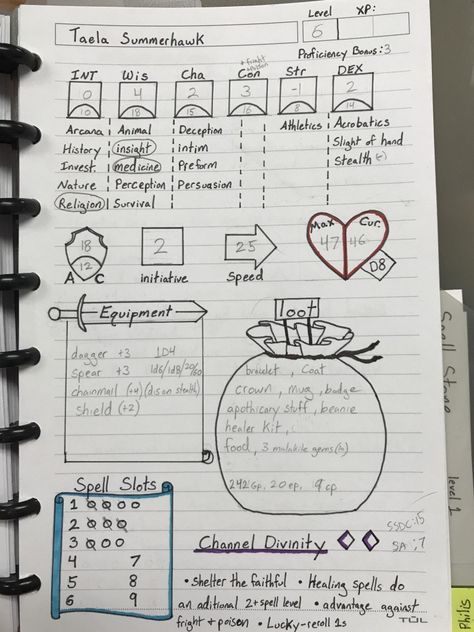 Taela Summerhawk
Level
XP:
6
Proficiency Bonus: 3
+fright
INT Wis Cha Con Str DEX
0 4 2 3 -1 2
10 18 15 16 8 14
Arcana Animal Deception Athletics Acrobatics
History insight intim Slight of hand
Invest. medicine Preform Stealth
Nature Perception Persuasion
Religion Survival
18
12
A C
2
initiative
25
Speed
Max Cur.
47 46
D8
Equipment
dagger +3 1D4
spear +3 1d6/1d8/20/60
chainmail (+4) (dis on stealth)
shield (+2)
loot
bracelet, Coat
crown, mug, badge
apothicary stuff, beanie
healer kit,
food, 3 malakite gems
242 GP, 20 ep, 9 cp
Spell Slots
1
2
3
4 7
5 8
6 9
Channel Divinity
SSDC:15
SA:7
• Shelter the faithful • Healing spells do
an aditional 2+spell level • advantage against
fright + poison • Lucky-reroll 1s
TUL
Spell Stone
level 1
Philis